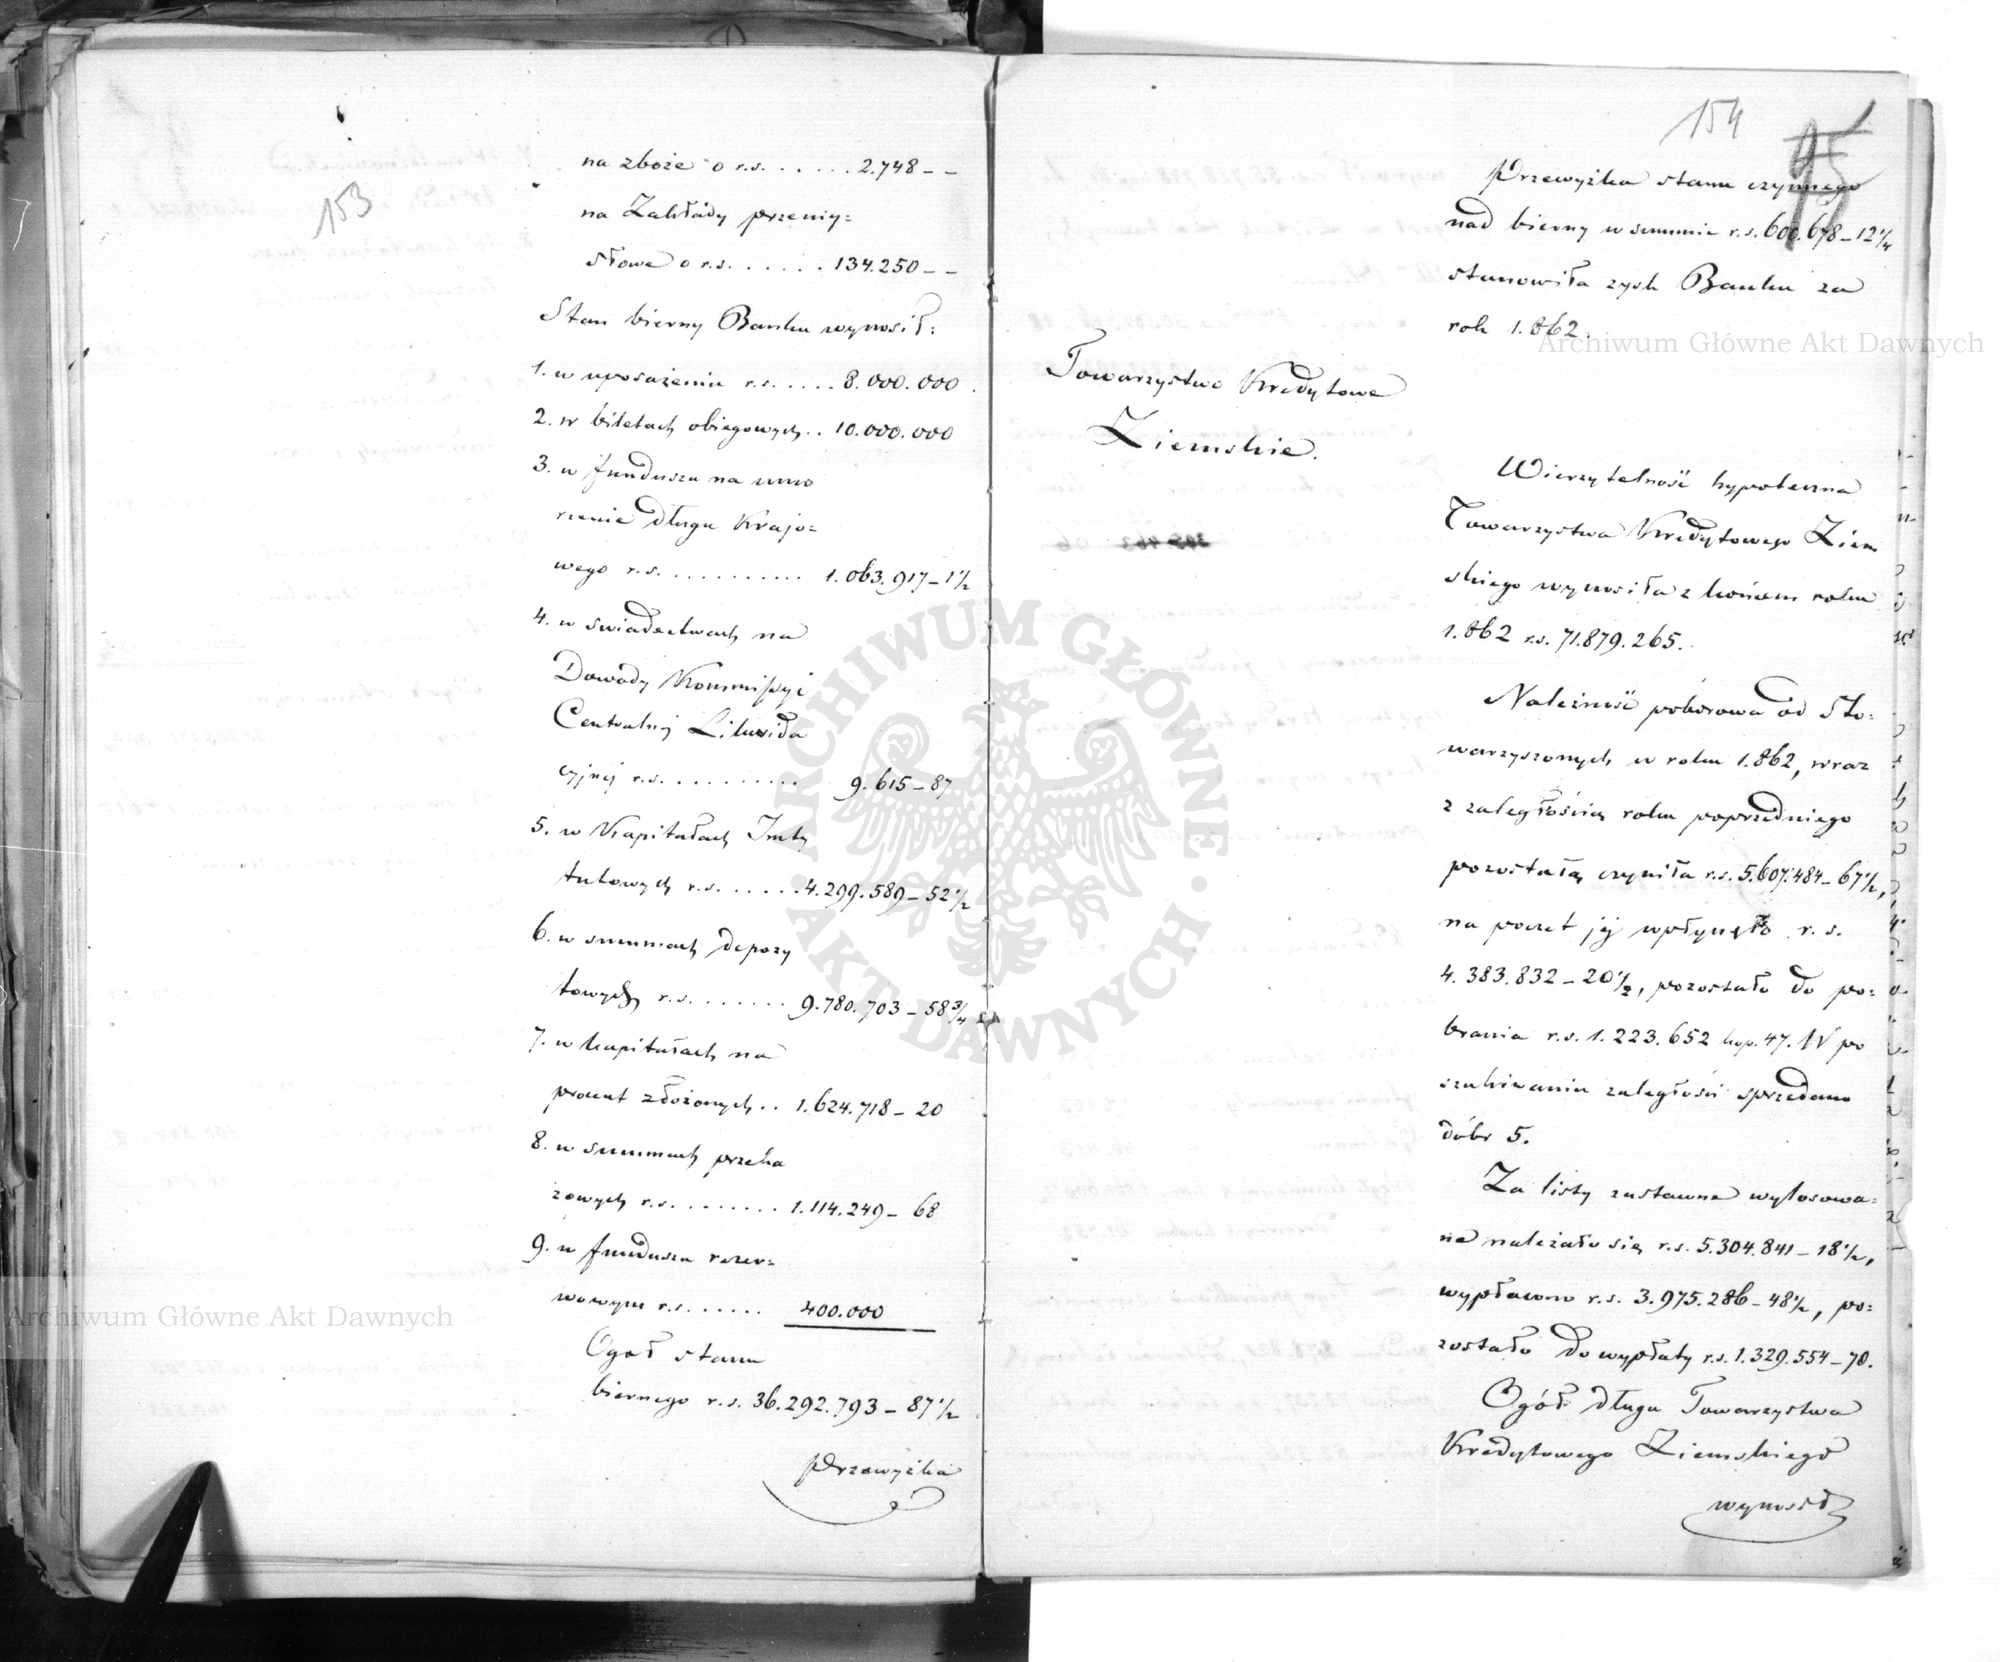 153
na zboże o r.s. . . . . . . 2.748 – –
na Zakłády przemy=
słowe o r.s. . . . . . . 134.250 – –
Stan bierny Banku wynosił:
1. w uposażeniu r.s. . . . . . 8.000.000
2. w biletach obiegowych . . 10.000.000
3. w funduszu na umo
rzenie długu Krajo=
wego r.s. . . . . . . . . . . . 1.063.917 – 1 1/2
4. w swiadectwach na
Dowody Kommissyi
Centralnej Likwida
cyjnej r.s. . . . . . . . . . . 9.615 – 87
5. w Kapitałach Insty
tutowych r.s. . . . . . 4.299.589 – 52 1/2
6. w summach depozy
towych r.s. . . . . . . . 9.780.703 – 58 3/4
7. w kapitałach na
procent złożonych . . 1.624.718 – 20
8. w summach przeka
zowych r.s. . . . . . . . . 1.114.249 – 68
9. w funduszu rezer=
wowym r.s. . . . . . . 400.000
Ogół stanu
biernego r.s. 36.292.793 – 87 1/2
Przewyżka
154
95
Przewyżka stanu czynnego
nad bierny w summie r.s. 600.678 – 12 1/4
stanowiła zysk Banku za
rok 1.862.
Towarzystwo Kredytowe
Ziemskie.
Wierzytelność hypoteczna
Towarzystwa Kredytowego Ziem
skiego wynosiła z końcem roku
1.862 r.s. 71.879.265.
Należność poborowa od Sto=
warzyszonych w roku 1.862, wraz
z zaległością roku poprzedniego
pozostałą czyniła r.s. 5.607.484 – 67 1/2,
na poczet jej wpłynęło r.s.
4.383.832 – 20 1/2, pozostało do po=
brania r.s. 1.223.652 kop. 47. W po
szukiwaniu zaległości sprzedano
dóbr 5.
Za listy zastawne wylosowa=
ne należało się r.s. 5.304.841 – 18 1/2,
wypłacono r.s. 3.975.286 – 48 1/2, po=
zostało do wypłaty r.s. 1.329.554 – 70.
Ogół długu Towarzystwa
Kredytowego Ziemskiego
wynosił
Archiwum Główne Akt Dawnych
Archiwum Główne Akt Dawnych
ARCHIWUM GŁÓWNE AKT DAWNYCH